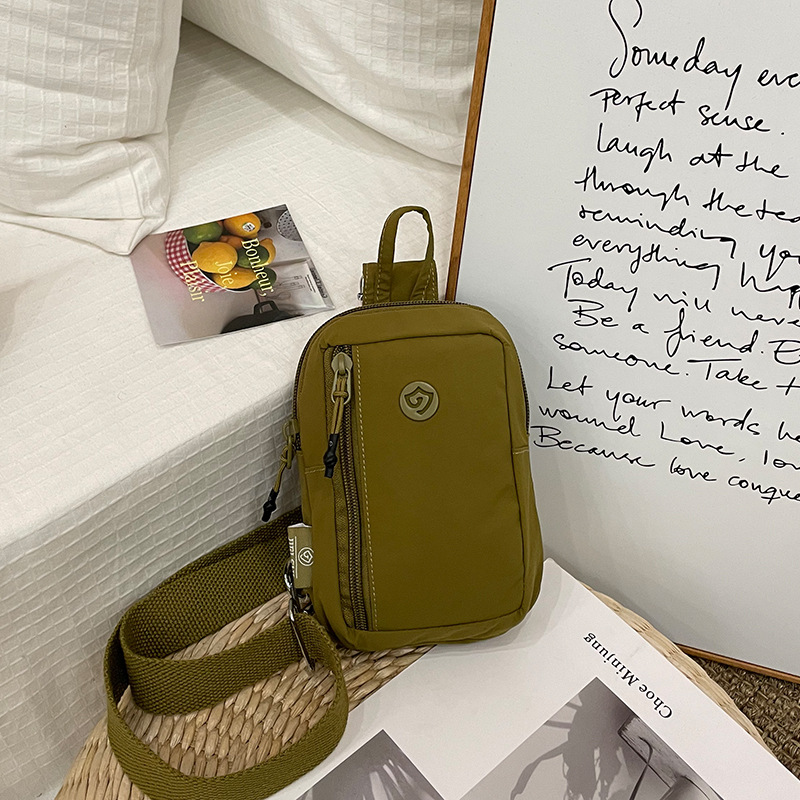 Someday eve
Perfect sense.
laugh at the
through the tea
reminding you
everything happ
Today will never
Be a friend. E
someone. Take t
Let your words he
wound Love, lov
Because love conque
Bonheur
Joie
Plaisir
Choe Minjung